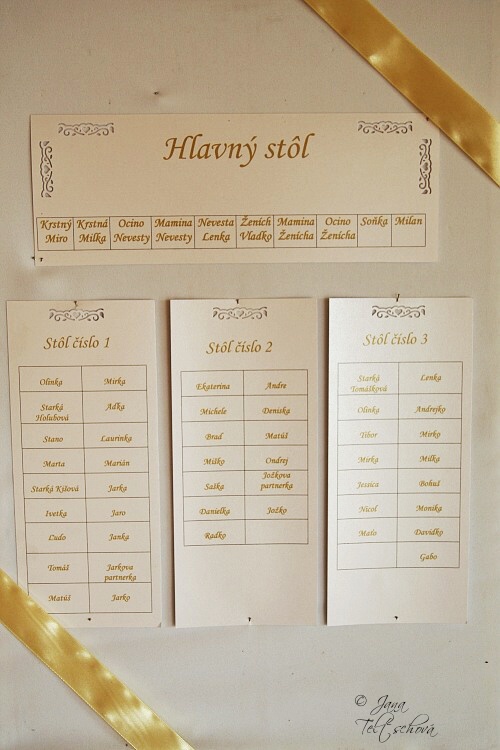 Hlavný stôl
Krstný Miro Krstná Milka Ocino Nevesty Mamina Nevesty Nevesta Lenka Ženích Vladko Mamina Ženícha Ocino Ženícha Soňka Milan
Stôl číslo 1
Olinka Mirka
Stará Holubová Adka
Stano Laurinka
Marta Marián
Stará Kišová Jarka
Ivetka Jaro
Ľudo Janka
Tomáš Jarkova partnerka
Matúš Jarko
Stôl číslo 2
Ekaterina Andre
Michele Deniska
Brad Matúš
Miško Ondrej
Saška Jožkova partnerka
Danielka Jožko
Radko
Stôl číslo 3
Stará Tomášková Lenka
Olinka Andrejko
Tibor Mirko
Mirka Milka
Jessica Bohuš
Nicol Monika
Maťo Davidko
Gabo
© Jana
Teltschová